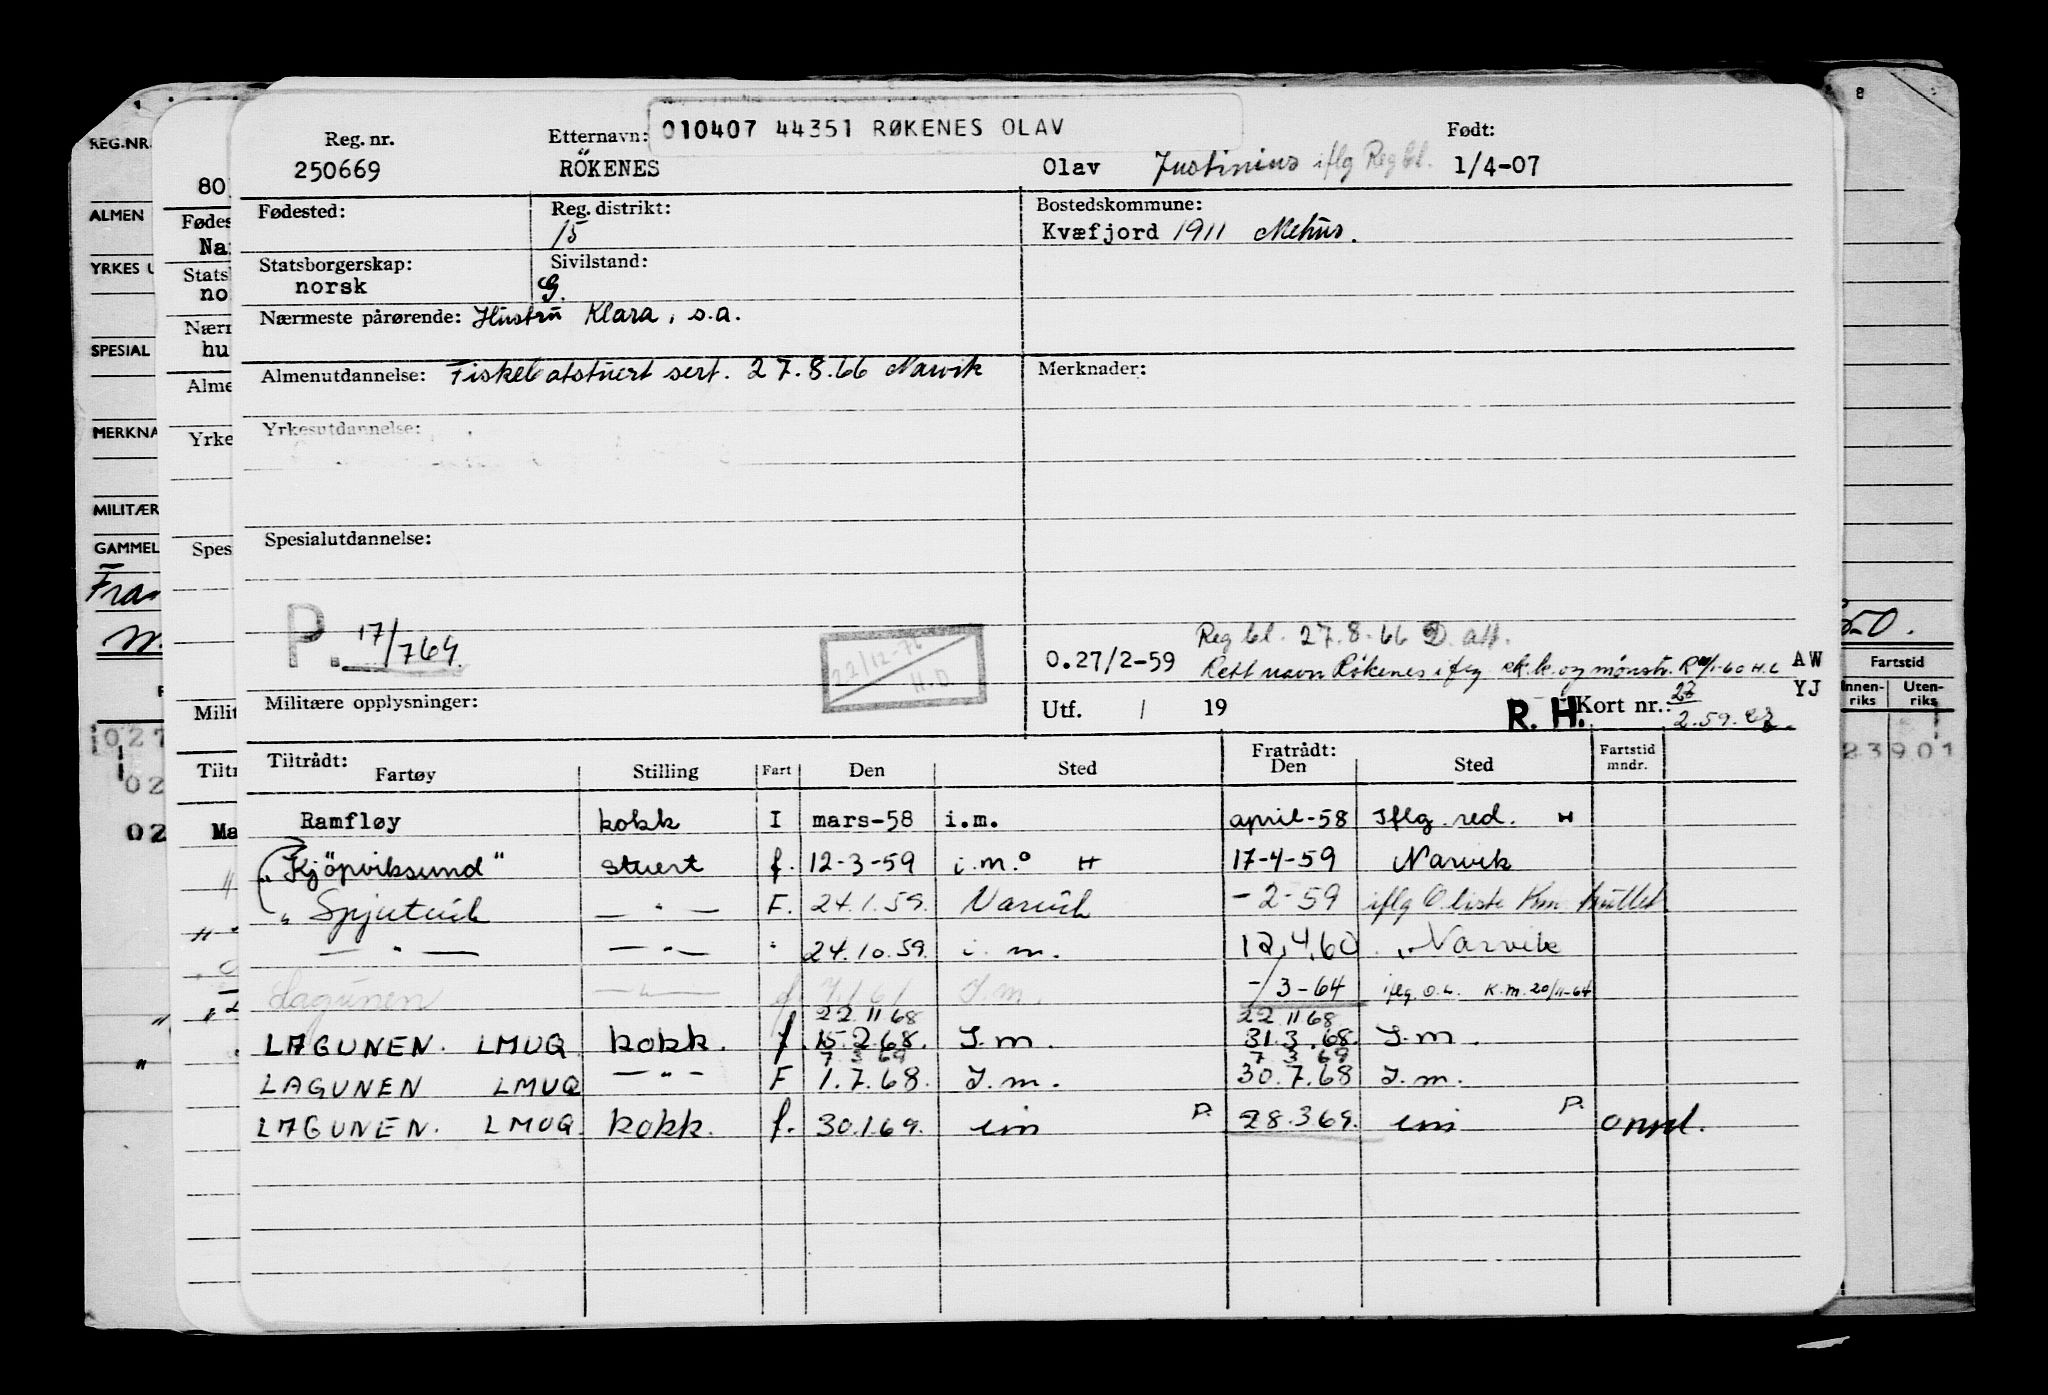 010407 44351 RØKENES OLAV
Reg. nr. Etternavn: Født:
250669 RÖKENES Olav Justinius iflg Reg bl. 1/4-07
Fødested: Reg. distrikt: Bostedskommune:
15 Kvæfjord 1911 Mehus.
Statsborgerskap: Sivilstand:
norsk G.
Nærmeste pårørende: Hustru Klara, s.a.
Almenutdannelse: Fiskebåtstuert sert. 27.8.66 Narvik Merknader:
Yrkesutdannelse:
Spesialutdannelse:
P. 17/769.
22/12-76
H.D.
Reg bl. 27.8.66 D. att.
O.27/2-59 Rett navn Røkenes iflg sk.k. og mønstr. /1-60 H.L AW
YJ
Militære opplysninger: Utf. / 19 R. H. Kort nr.:
2.59.
Tiltrådt: Fratrådt: Fartstid
Fartøy Stilling Fart Den Sted Den Sted mndr.
Ramfløy kokk I mars-58 i.m. april-58 Iflg. red. H
"Kjöpviksund" stuert f. 12-3-59 i.m. H 17-4-59 Narvik
" Spjutvik — " — F. 24.1.59. Narvik - 2-59 iflg O liste Km. rullet
— " — — " — " 24.10.59. i. m. 12.4.60 Narvik
Lagunen — " — f. 7.1.61 I.m. -/3-64 iflg. O.L. K.M. 20/11-64
22.11 68 22.11 68
LAGUNEN. LMUQ kokk. f. 15.2.68. I.m. 31.3.68. I.m.
7.3 69 7.3 69
LAGUNEN LMUQ — " — F 1.7.68. I.m. 30.7.68 I.m.
LAGUNEN. LMUQ. kokk. f. 30.1.69. im P. 28.3.69. im P. onnl.
REG.NR.
ALMEN
YRKES U
SPESIAL
MERKNA
MILITÆR
GAMMEL
Fra
80
Fødes
Na
Stats
no
Nærn
hu
Alme
Yrke
Spes
Milit
Tiltr
Ma
027
02
02
8
50.
Fartstid
Innen-
riks
Uten-
riks
23901